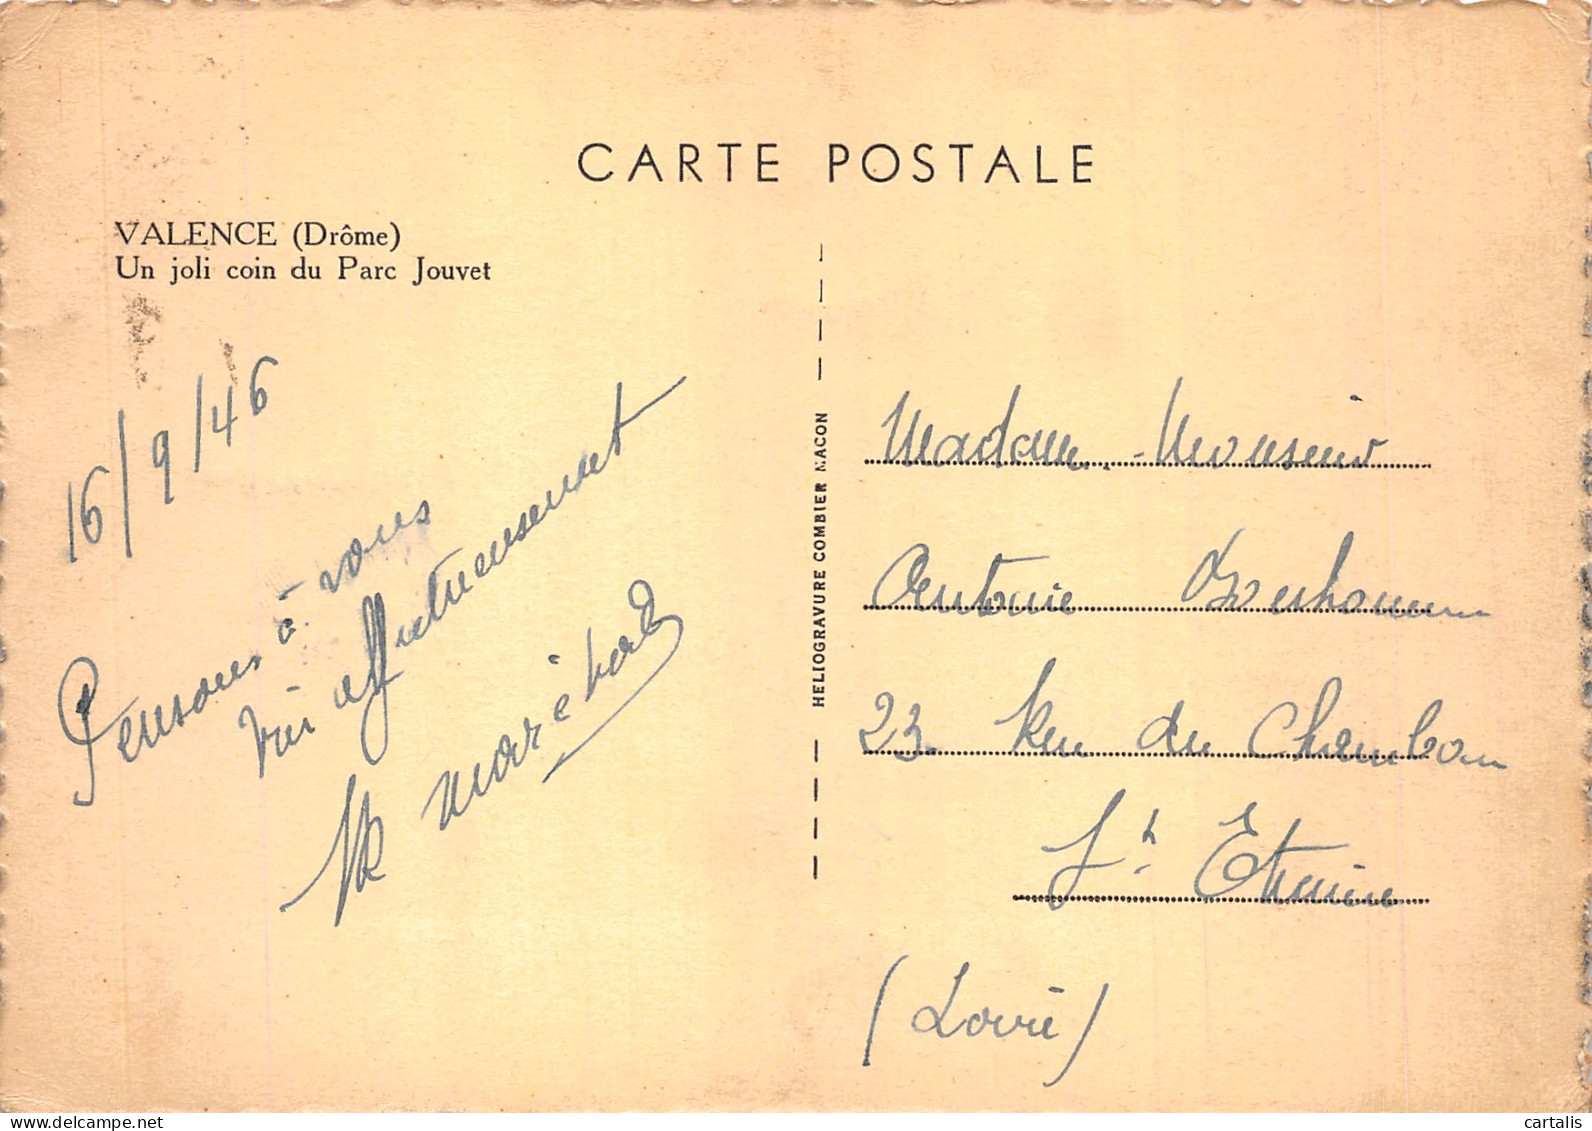 CARTE POSTALE
VALENCE (Drôme)
Un joli coin du Parc Jouvet
16/9/46
Pensons à vous
affectueusement
Maréchal
HELIOGRAVURE COMBIER MACON
Madame. Monsieur
Antoine
23 Rue du Chambon
St Etienne
(Loire)
cartalis
delcampe.net